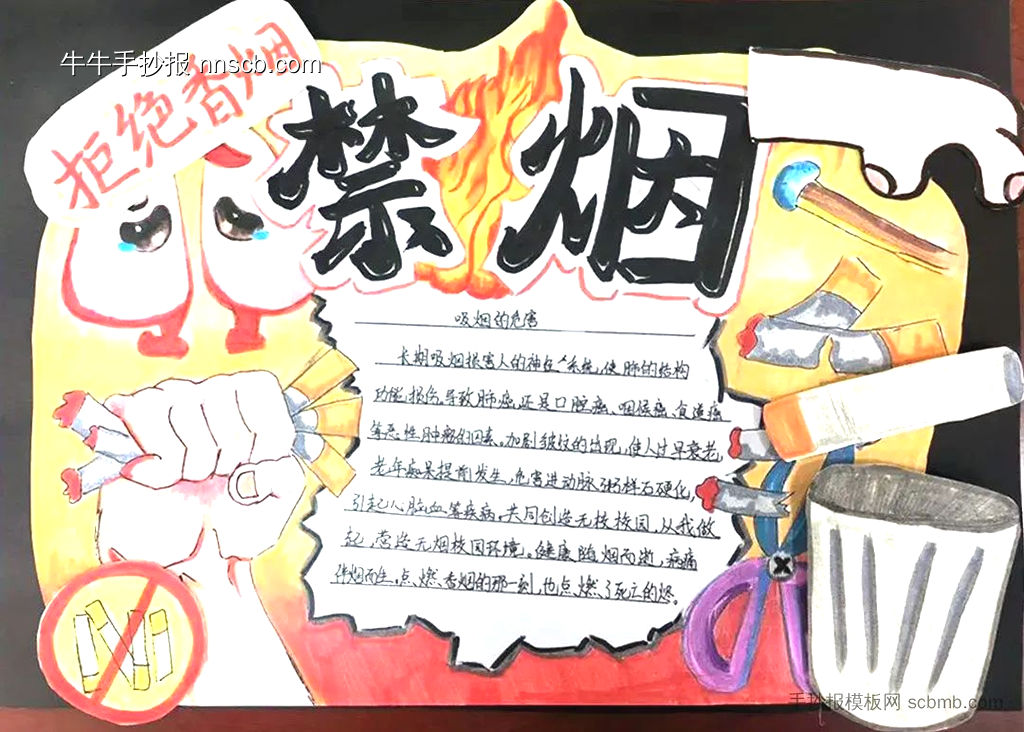 牛牛手抄报 nnscb.com
拒绝香烟
禁烟
吸烟的危害
长期吸烟损害人的神经系统,使肺的结构
功能损伤,导致肺癌,还是口腔癌、咽侯癌、食道癌
等恶性肿瘤的因素。加剧皱纹的出现,使人过早衰老,
老年痴呆提前发生,危害进动脉粥样石硬化,
引起心脑血管疾病。共同创造无校校园,从我做
起,营造无烟校园环境。健康随烟而逝,病痛
伴烟而生。点燃香烟的那一刻,也点燃了死亡的
手抄报模板网 scbmb.com